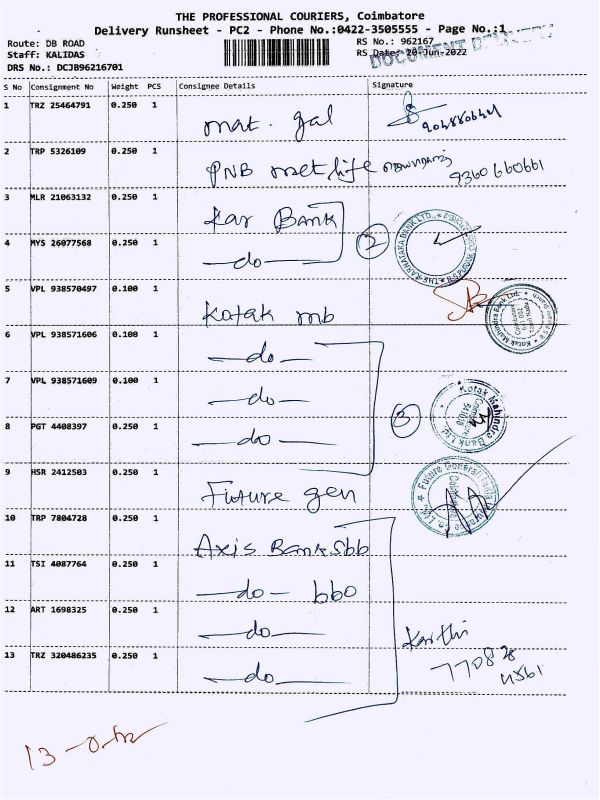 THE PROFESSIONAL COURIERS, Coimbatore
Delivery Runsheet - PC2 - Phone No.:0422-3505555 - Page No.:1
Route: DB ROAD RS No.: 962167
Staff: KALIDAS RS Date: 20-Jun-2022
DOCUMENT DELIVERY
DRS No.: DCJB96216701
S No Consignment No Weight PCS Consignee Details Signature
1 TRZ 25464791 0.250 1 mat. gal
2 TRP 5326109 0.250 1 PNB met life 9360660661
3 MLR 21063132 0.250 1 Kar Bank
4 MYS 26077568 0.250 1 —do— 2
5 VPL 938570497 0.100 1 Kotak mb
6 VPL 938571606 0.100 1 —do—
7 VPL 938571609 0.100 1 —do—
8 PGT 4408397 0.250 1 —do— 3
Kotak Mahindra Bank Ltd
9 HSR 2412503 0.250 1 Future gen
10 TRP 7804728 0.250 1 Axis Bank Sbb
11 TSI 4087764 0.250 1 —do— bbo
12 ART 1698325 0.250 1 —do— Karthi
13 TRZ 320486235 0.250 1 —do—